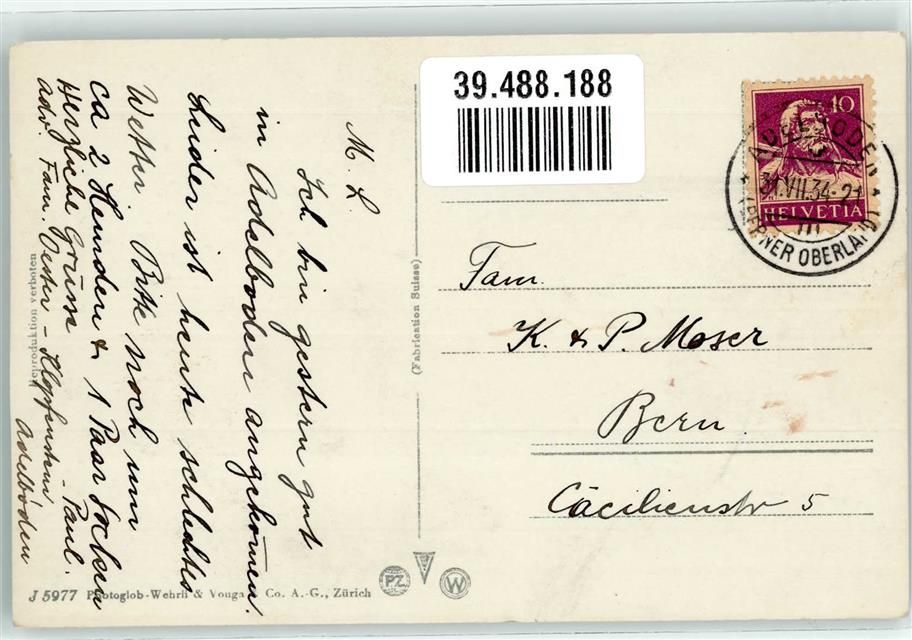 39.488.188
10
HELVETIA
ADELBODEN
31.VII.34-21
III
(BERNER OBERLAND)
M. L.
Ich bin gestern gut
in Adelboden angekommen.
Leider ist heute schlechtes
Wetter. Bitte noch um
ca 2 Hemden & 1 Paar Socken
Herzliche Grüsse
Paul.
adr. Fam. Oester - Klopfenstein
Adelboden
Fam.
K. & P. Moser
Bern.
Cäcilienstr 5
(Fabrication Suisse)
Reproduktion verboten
J 5977 Photoglob-Wehrli & Vouga Co. A.-G., Zürich
PZ
W